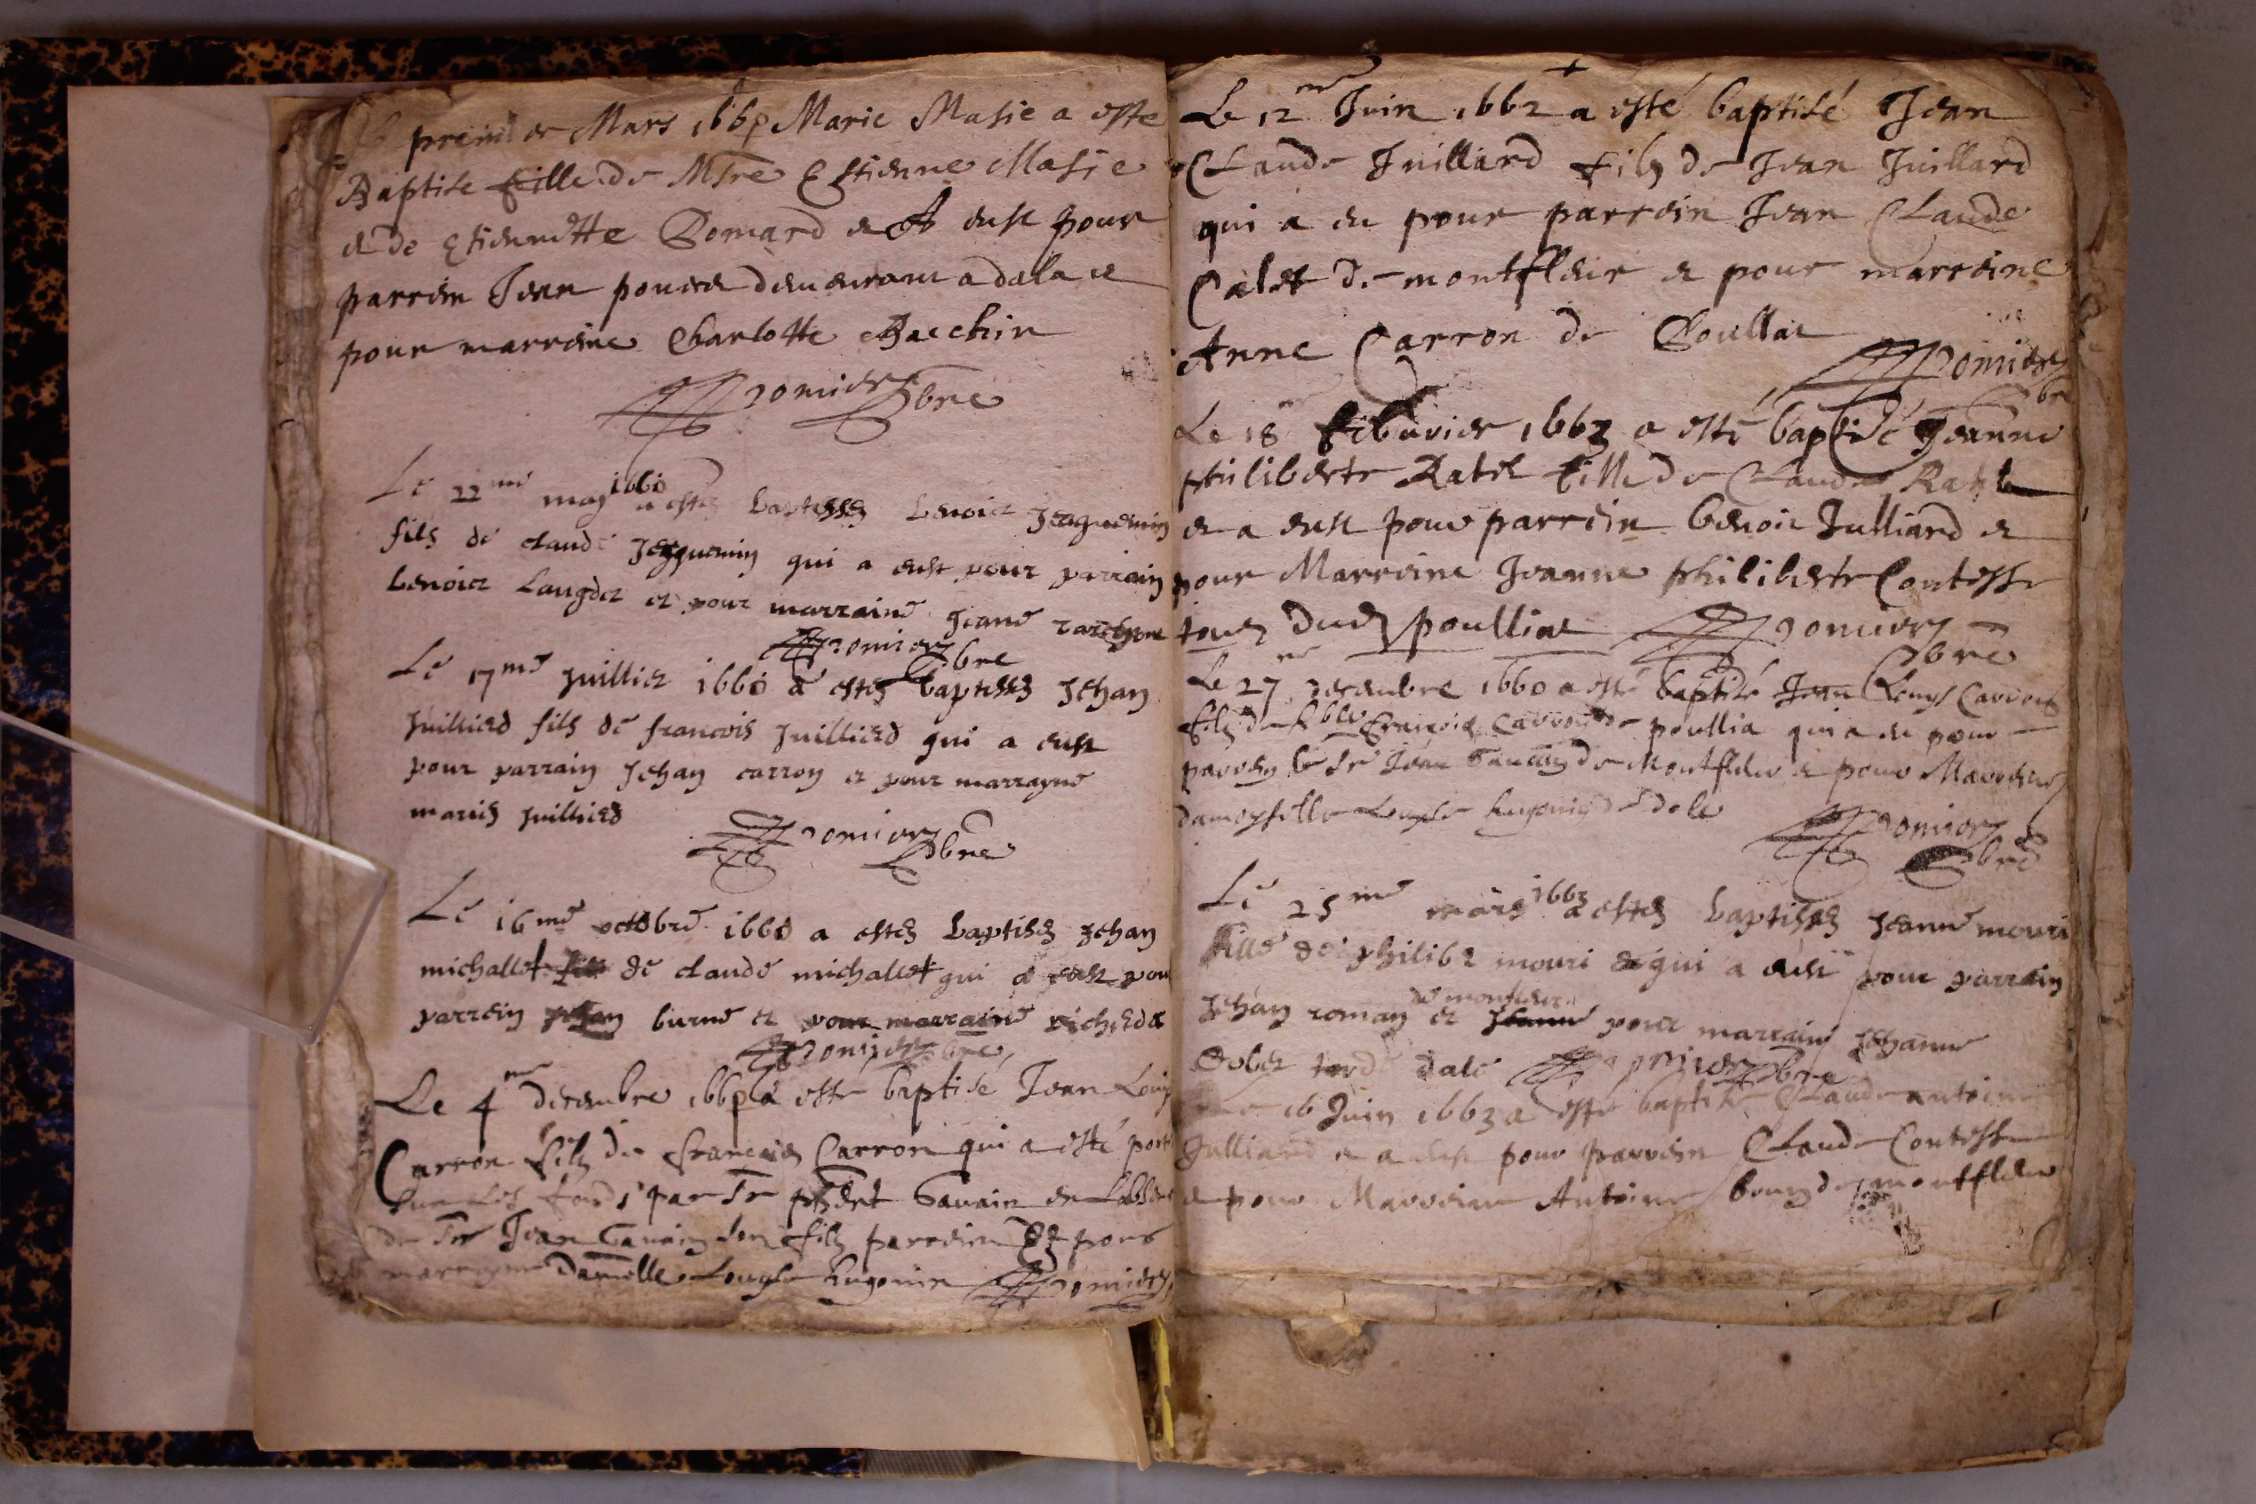 Le premier Mars 1660 Marie Masie a esté
Baptise fille de Mre Estienne Masie
et de Estiennette Gomard et A eust pour
parrein Jean demeurant a dala et
pour marreine Charlotte Jacchin
Romier pbre
Le 22me may 1660 a estez baptissez benoict Jeaguemin
fils de claude Jeaguemin qui a eust pour parrain
benoict et pour marraine Jeane
Romier pbre
Le 17me juillier 1660 a estez baptissez Jehan
juillierd fils de francois juillierd qui a eust
pour parrain Jehan carron et pour marrayne
marie juillierd
Romier pbre
Le 16me octobre 1660 a estez baptisez jehan
michallet fils de claude michallet qui a eust pour
parrein jehan burne et pour marraine
Romier pbre
Le 4me decembre 1660 a esté baptisé Jean Louys
Carron filz de francois Carron qui a esté porté
sur les fonds par Sr Gavain en
de Sr Jean Gavain son filz parrein Et pour
marreyne Damelle Louyse hugonin Romier
Le 12me Juin 1662 a esté baptisé Jean
Claude Juillard filz de Jean Juillard
qui a eu pour parrein Jean Claude
Calet de montfleur et pour marreine
Anne Carron de Poullat
Romier pbre
Le 18me febuvier 1663 a esté baptisé Jeanne
philiberte Ratel fille de Claude Ratel
et a eust pour parrein benoit Julliard et
pour Marreine Jeanne philiberte Contesse
tous dud poulliat Romier pbre
Le 27me decembre 1660 a esté baptisé Jean Louys Carron
filz de François Carron de poullia qui a eu pour
parrein le Sr Jean Gavain de Montfleur et pour Marreine
damoyselle Louyse hugonin de dole
Romier pbre
Le 25me mars 1663 a estez baptissez jeanne mouri
fille de philibt mouri et qui a eust pour parrain
Jehan roman de monfleur et Jeanne pour marrain jehanne
Gobet dale Romier pbre
Le 16 Juin 1663 a esté baptisé Claude antoine
Julliard et a eust pour parrein Claude Contesse
et pour Marreine Antoine bourg de montfleur